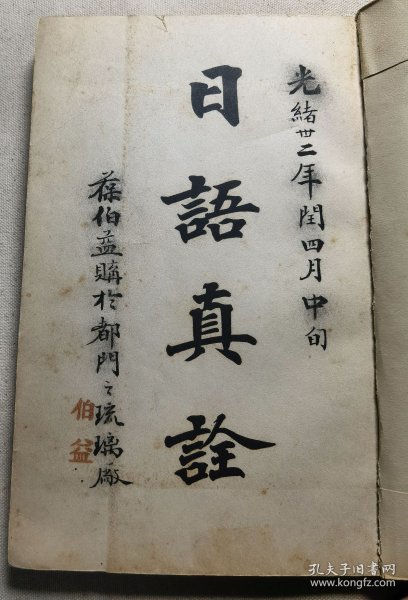 光緒卅二年閏四月中旬
日語真詮
葆伯益購於都門之琉璃廠
伯益
孔夫子旧书网
www.kongfz.com